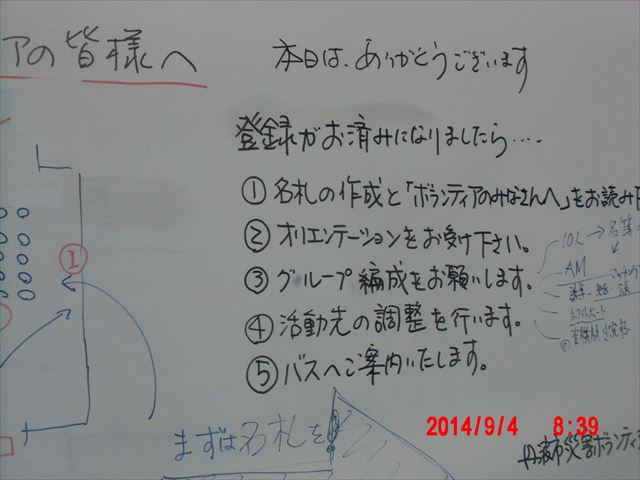 アの皆様へ
本日は、ありがとうございます
登録がお済みになりましたら....
① 名札の作成と「ボランティアのみなさんへ」をお読み下
② オリエンテーションをお受け下さい。
③ グループ編成をお願いします。
④ 活動先の調整を行います。
⑤ バスへご案内いたします。
①
AM
まずは名札を
2014/9/4 8:39
丹波市災害ボランティア